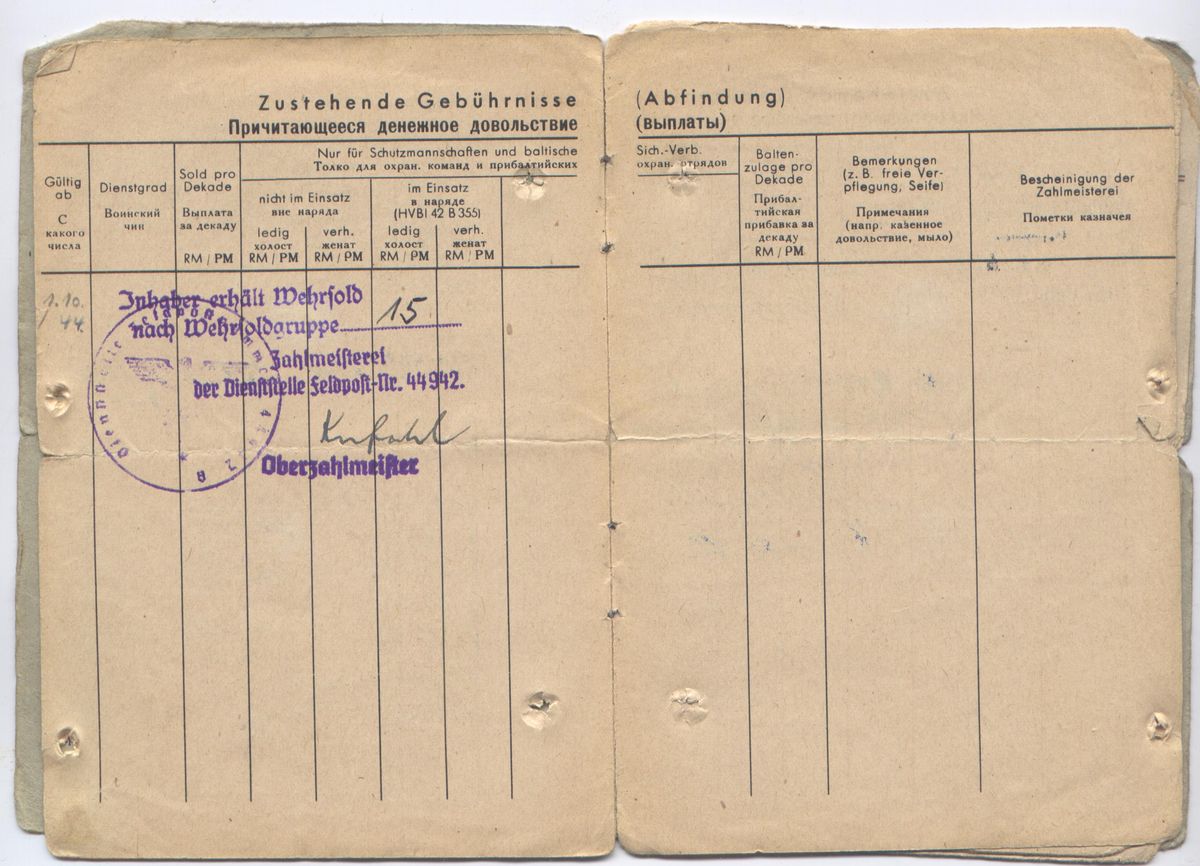 Zustehende Gebührnisse
Причитающееся денежное довольствие
Gültig ab
С какого числа
Dienstgrad
Воинский чин
Sold pro Dekade
Выплата за декаду
RM / РМ
Nur für Schutzmannschaften und baltische
Только для охран. команд и прибалтийских
nicht im Einsatz
вне наряда
im Einsatz
в наряде
(HVBl 42 B 355)
ledig
холост
RM / РМ
verh.
женат
RM / РМ
ledig
холост
RM / РМ
verh.
женат
RM / РМ
1.10.
44.
Inhaber erhält Wehrsold
nach Wehrsoldgruppe 15
Zahlmeisterei
der Dienststelle Feldpost-Nr. 44942.
Oberzahlmeister
(Abfindung)
(выплаты)
Sich.-Verb.
охран. отрядов
Balten-
zulage pro
Dekade
Прибал-
тийская
прибавка за
декаду
RM / РМ
Bemerkungen
(z. B. freie Ver-
pflegung, Seife)
Примечания
(напр. казенное
довольствие, мыло)
Bescheinigung der
Zahlmeisterei
Пометки казначея